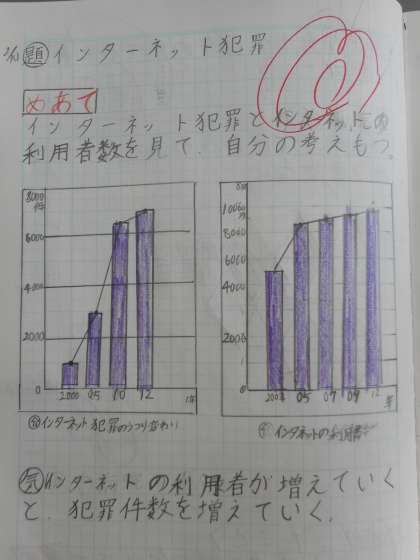 2/10 題 インターネット犯罪
めあて
インターネット犯罪とインターネットの
利用者数を見て、自分の考えもつ。
8000
件
6000
4000
2000
0
2000 05 10 12 年
インターネット犯罪のうつりかわり
10000
万
8000
6000
4000
2000
0
05 07 09 12 年
インターネットの利用者
気 インターネットの利用者が増えていく
と、犯罪件数を増えていく。